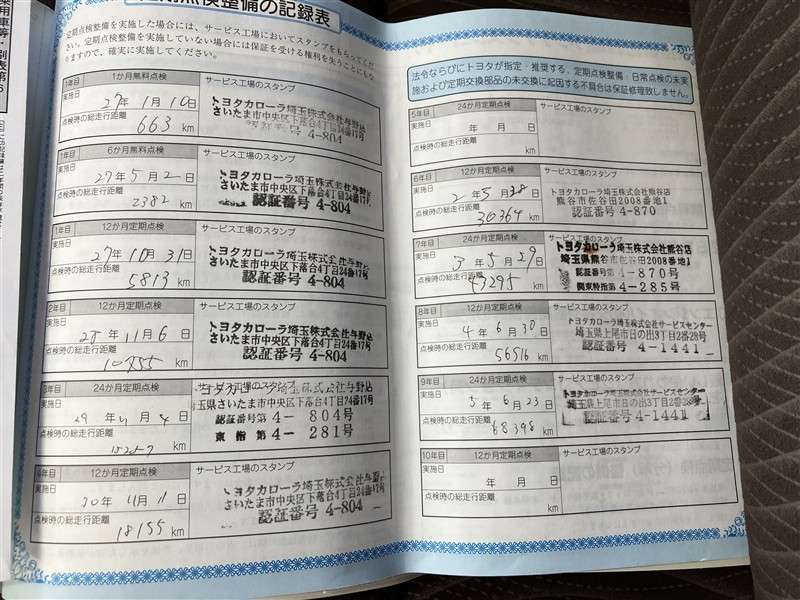 定期点検整備の記録表
定期点検整備を実施した場合には、サービス工場においてスタンプをもらってくだ
さい。定期点検整備を実施していない場合には保証を受ける権利を失うことにもな
りますので、確実に実施してください。
1年目 1か月無料点検 サービス工場のスタンプ
実施日 27年1月10日
トヨタカローラ埼玉株式会社与野店
さいたま市中央区下落合4丁目24番17号
認証番号 4-804
点検時の総走行距離 663 km
1年目 6か月無料点検 サービス工場のスタンプ
実施日 27年5月2日
トヨタカローラ埼玉株式会社与野店
さいたま市中央区下落合4丁目24番17号
認証番号 4-804
点検時の総走行距離 2382 km
1年目 12か月定期点検 サービス工場のスタンプ
実施日 27年10月31日
トヨタカローラ埼玉株式会社与野店
さいたま市中央区下落合4丁目24番17号
認証番号 4-804
点検時の総走行距離 5813 km
2年目 12か月定期点検 サービス工場のスタンプ
実施日 28年11月6日
トヨタカローラ埼玉株式会社与野店
さいたま市中央区下落合4丁目24番17号
認証番号 4-804
点検時の総走行距離 km
3年目 24か月定期点検 サービス工場のスタンプ
実施日 29年11月4日
トヨタカローラ埼玉株式会社与野店
埼玉県さいたま市中央区下落合4丁目24番17号
認証番号第4-804号
東指第4-281号
点検時の総走行距離 km
4年目 12か月定期点検 サービス工場のスタンプ
実施日 30年11月11日
トヨタカローラ埼玉株式会社与野店
さいたま市中央区下落合4丁目24番17号
認証番号 4-804
点検時の総走行距離 18155 km
法令ならびにトヨタが指定・推奨する、定期点検整備・日常点検の未実
施および定期交換部品の未交換に起因する不具合は保証修理致しません。
5年目 24か月定期点検 サービス工場のスタンプ
実施日 年 月 日
点検時の総走行距離 km
6年目 12か月定期点検 サービス工場のスタンプ
実施日 2年5月 日
トヨタカローラ埼玉株式会社熊谷店
熊谷市佐谷田2008番地1
認証番号 4-870
点検時の総走行距離 30364 km
7年目 24か月定期点検 サービス工場のスタンプ
実施日 3年5月29日
トヨタカローラ埼玉株式会社熊谷店
埼玉県熊谷市佐谷田2008番地1
認証番号第4-870号
関東特指第4-285号
点検時の総走行距離 43295 km
8年目 12か月定期点検 サービス工場のスタンプ
実施日 4年6月30日
トヨタカローラ埼玉株式会社サービスセンター
埼玉県上尾市日の出3丁目2番28号
認証番号 4-1441
点検時の総走行距離 56516 km
9年目 24か月定期点検 サービス工場のスタンプ
実施日 5年6月23日
トヨタカローラ埼玉株式会社サービスセンター
埼玉県上尾市日の出3丁目2番28号
認証番号 4-1441
点検時の総走行距離 68398 km
10年目 12か月定期点検 サービス工場のスタンプ
実施日 年 月 日
点検時の総走行距離 km